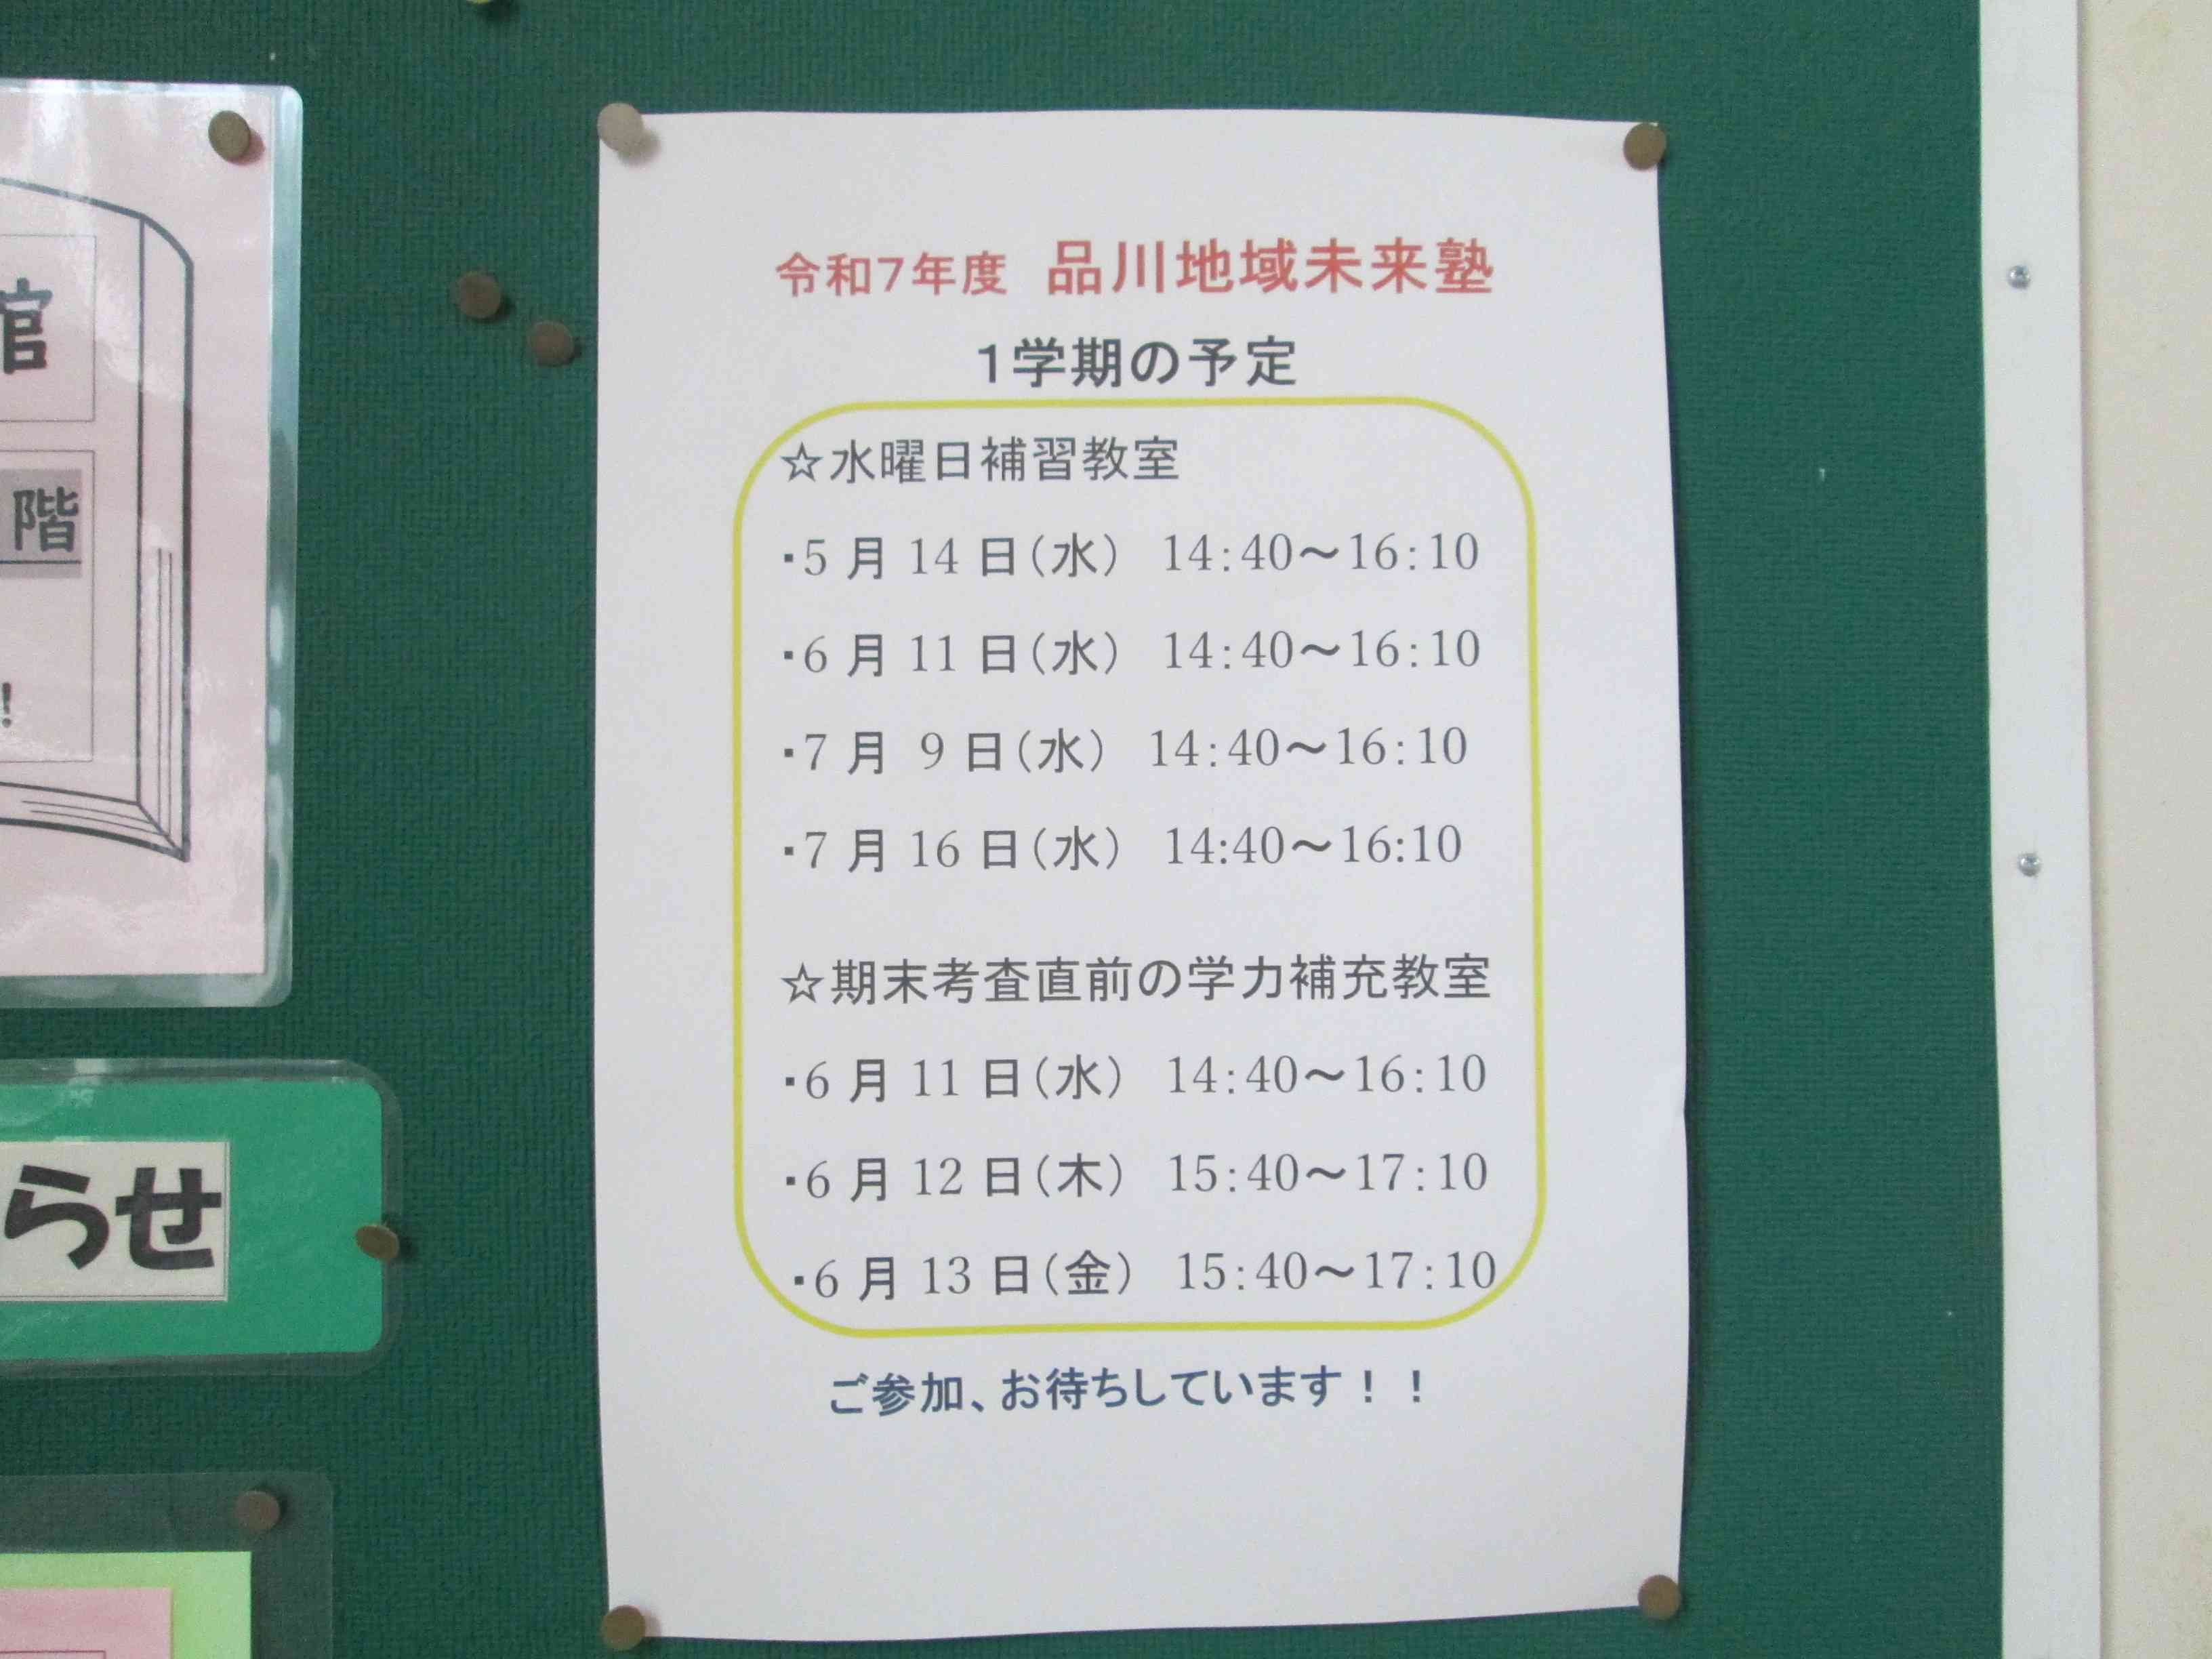 館
階
!
らせ
令和7年度 品川地域未来塾
1学期の予定
☆水曜日補習教室
・5 月 14 日(水) 14:40~16:10
・6 月 11 日(水) 14:40~16:10
・7 月 9 日(水) 14:40~16:10
・7 月 16 日(水) 14:40~16:10
☆期末考査直前の学力補充教室
・6 月 11 日(水) 14:40~16:10
・6 月 12 日(木) 15:40~17:10
・6 月 13 日(金) 15:40~17:10
ご参加、お待ちしています!!